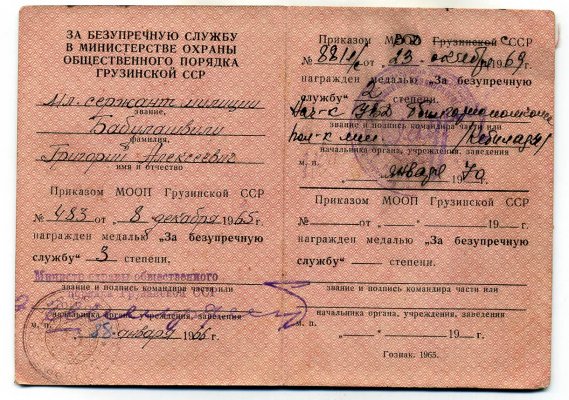 ЗА БЕЗУПРЕЧНУЮ СЛУЖБУ
В МИНИСТЕРСТВЕ ОХРАНЫ
ОБЩЕСТВЕННОГО ПОРЯДКА
ГРУЗИНСКОЙ ССР
Мл. сержант милиции
звание,
Бабулашвили
фамилия,
Григорий Алексеевич
имя и отчество
Приказом МООП Грузинской ССР
№ 483 от „ 8 " декабря 1965 г.
награжден медалью „За безупречную
службу" 3 степени.
Министр охраны общественного
порядка Грузинской ССР
звание и подпись командира части или
начальника органа, учреждения, заведения
м. п. января 1966 г.
Приказом МООП Грузинской ССР
ВД
от 23 октября 1969 г.
награжден медалью „За безупречную
службу" 2 степени.
звание и подпись командира части или
начальника органа, учреждения, заведения
м. п. января 70
Приказом МООП Грузинской ССР
№ — от „ — " — 19 — г.
награжден медалью „За безупречную
службу" — степени.
звание и подпись командира части или
начальника органа, учреждения, заведения
м. п. „ — " — 19 — г.
Гознак. 1965.